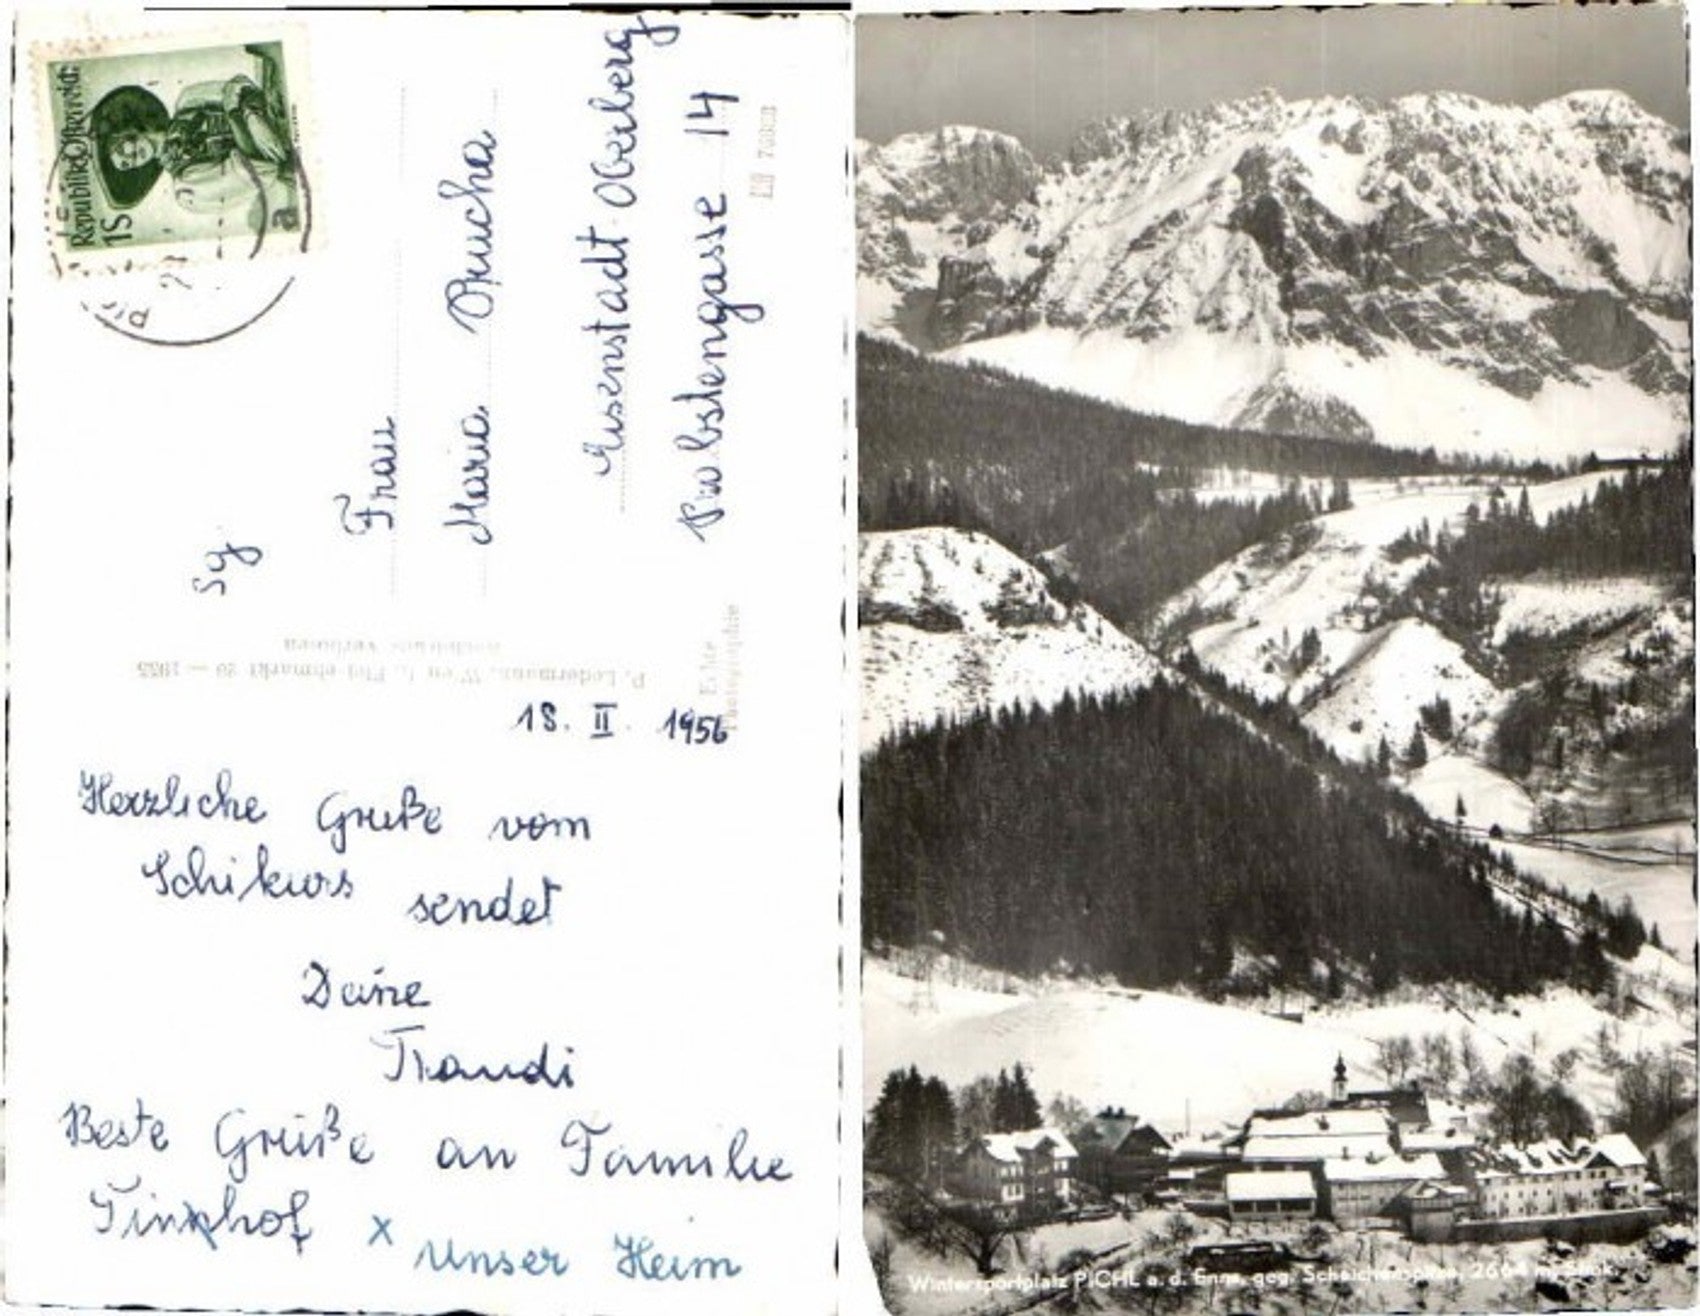 Republik Österreich
1S
Sg
Frau
Maria Prucha
Eisenstadt-Oberberg
Probstengasse 14
P. Ledermann, Wien I., Fleischmarkt 20 — 1955
Nachdruck verboten
Echte
Photographie
18. II. 1956
Herzliche Grüße vom
Schikurs sendet
Deine
Traudi
Beste Grüße an Familie
x unser Heim
Wintersportplatz PICHL a. d. Enns, geg. Scheichenspitze, 2664 m, Stmk.